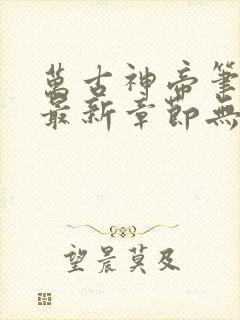 萬古神帝筆
最新章節無
望晨莫及